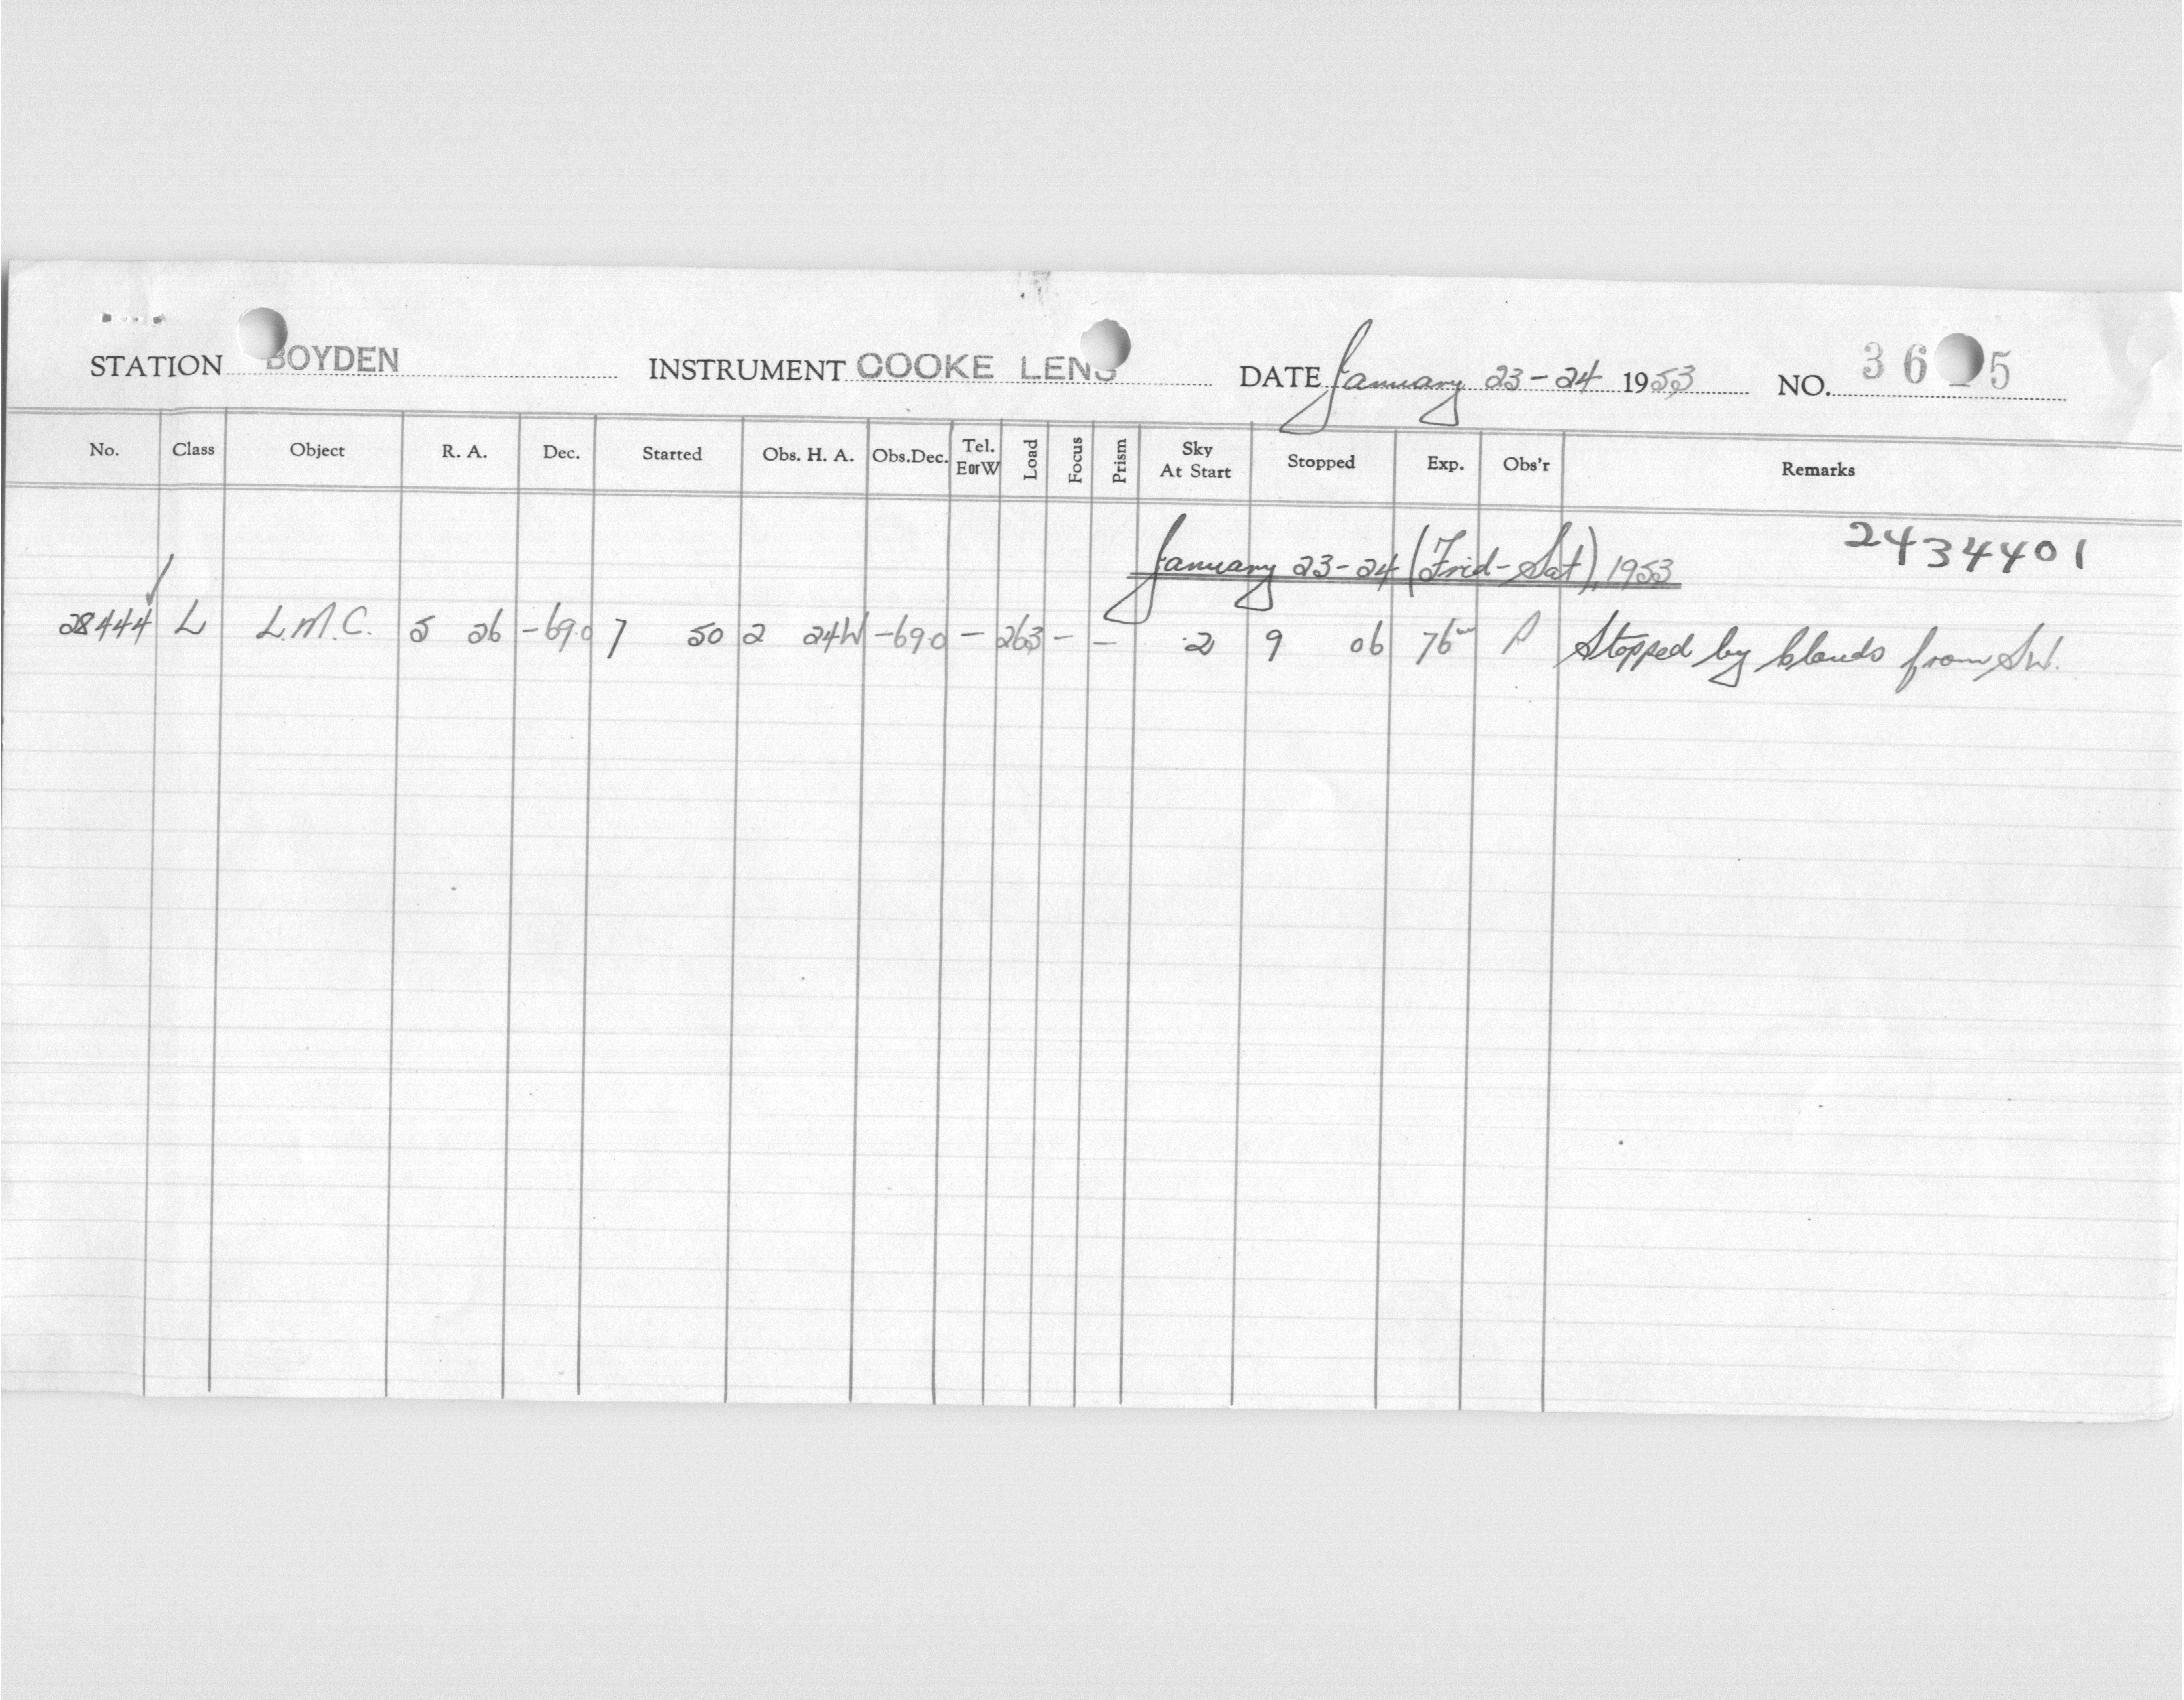 STATION BOYDEN INSTRUMENT COOKE LENS DATE January 23-24 1953 NO. 36 5
No. Class Object R. A. Dec. Started Obs. H. A. Obs.Dec. Tel. EorW Load Focus Prism Sky At Start Stopped Exp. Obs'r Remarks
January 23-24 (Frid-Sat), 1953 2434401
28444 ✓ L L.M.C. 5 26 -69.0 7 50 2 24W -69.0 - 263 - - 2 9 06 76m Stopped by clouds from SW.